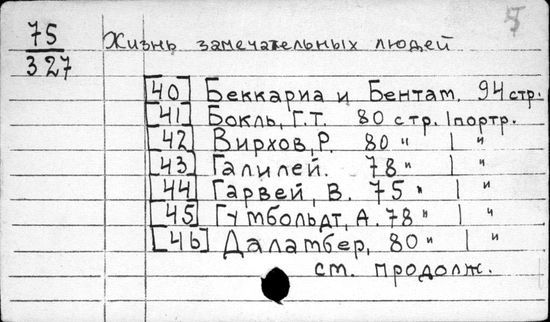 5
75 Жизнь замечательных людей
327
[40] Беккариа и Бентам, 94 стр.
[41] Бокль, Г.Т. 80 стр. 1 портр.
[42] Вирхов, Р. 80 " 1 "
[43] Галилей. 78 " 1 "
[44] Гарвей, В. 75 " 1 "
[45] Гумбольдт, А. 78 " 1 "
[46] Даламбер, 80 " 1 "
см. продолж.